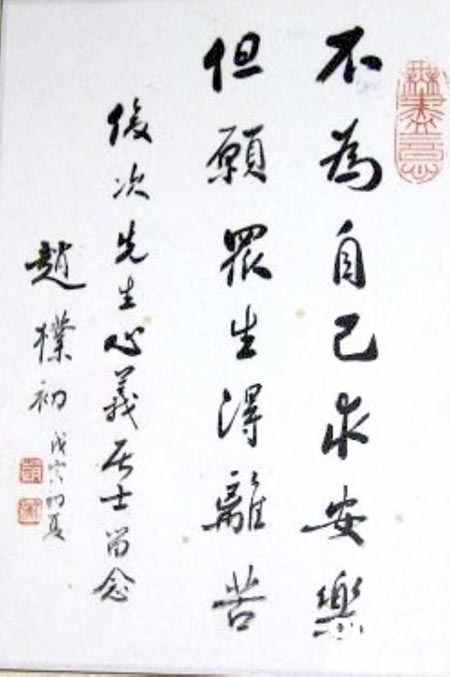 不為自己求安樂
但願眾生得離苦
俊次先生心義居士留念
趙樸初
戊寅初夏